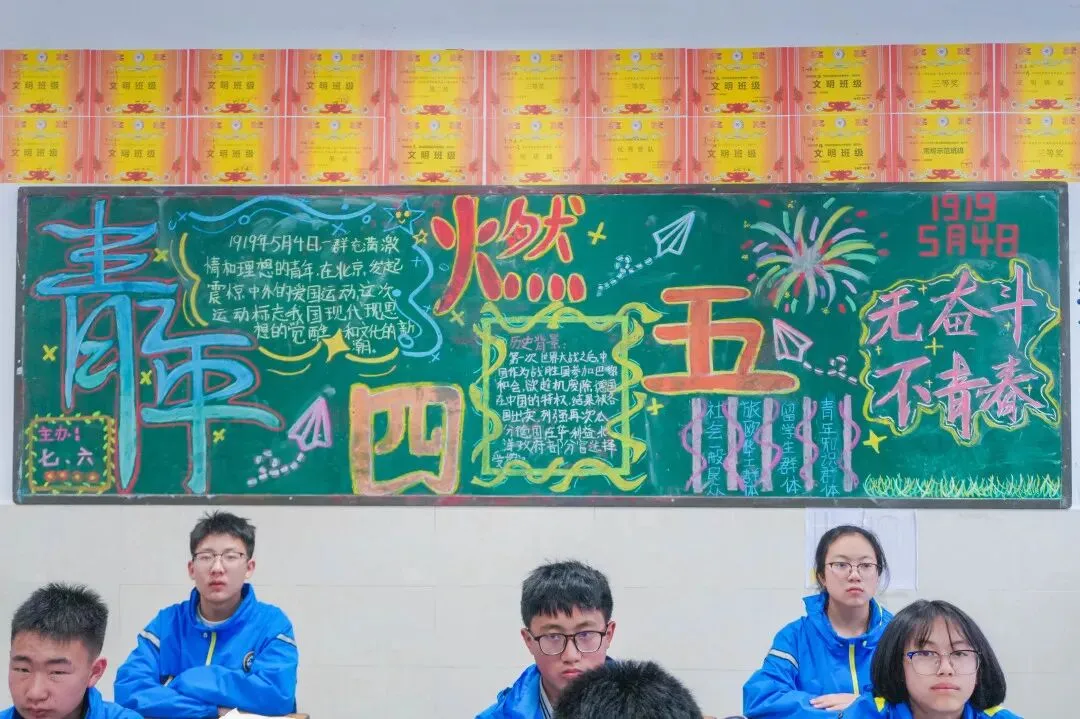 文明班级
文明班级
文明班级
文明班级
三等奖
三等奖
文明班级
文明班级
三等奖
文明班级
文明班级
文明班级
文明班级
文明班级
文明班级
常规示范班级
三等奖
青年
1919年5月4日一群充满激
情和理想的青年,在北京,发起
震惊中外的爱国运动这次
运动标志我国现代思
想的觉醒和文化的新
潮。
主办:
七、六
燃
四
五
历史背景:
第一次世界大战之后,中
国作为战胜国参加巴黎
和会,欲趁机废除德国
在中国的特权,结果被各
国出卖,列强再次瓜
分德国在华利益北
洋政府却
选择
社会一般民众
旅欧华工群体
留学生群体
青年知识群体
1919
5月4日
无奋斗
不青春